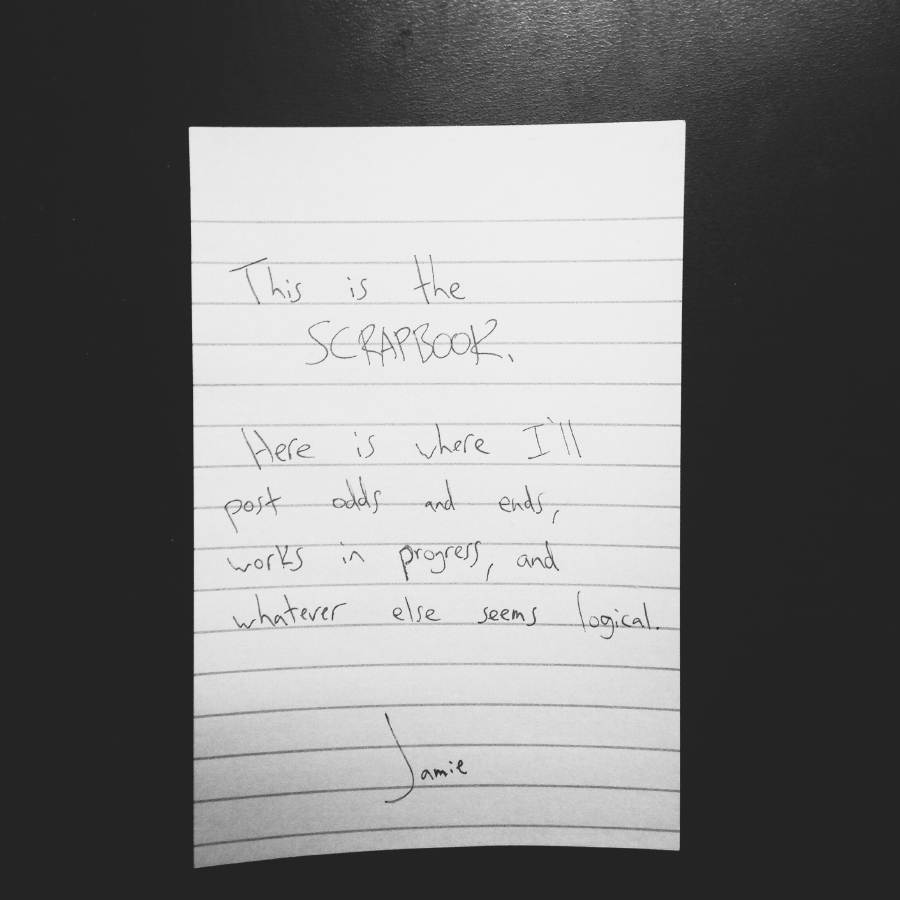 This is the
SCRAPBOOK.
Here is where I'll
post odds and ends,
works in progress, and
whatever else seems logical.
Jamie